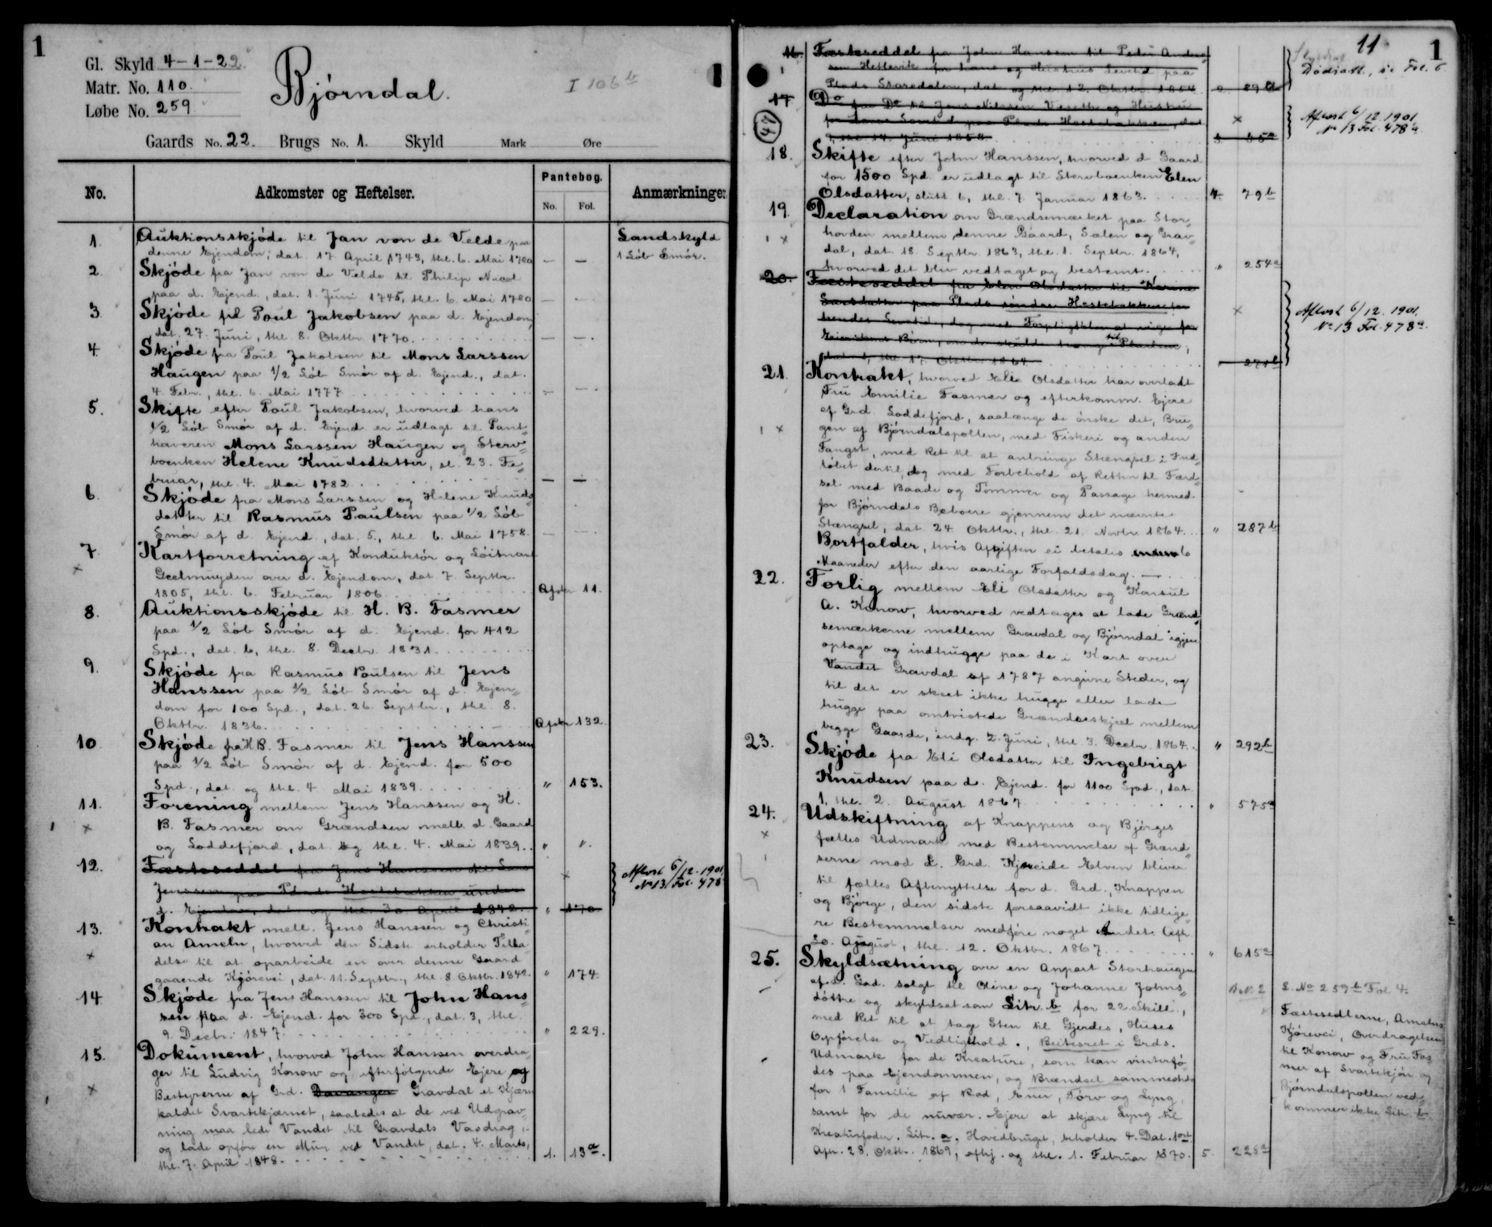 1
Gl. Skyld 4-1-22.
Matr. No. 110.
Løbe No. 259
Bjørndal.
I 106 b
Gaards No. 22. Brugs No. 1. Skyld Mark Øre
No. Adkomster og Heftelser. Pantebog. Anmærkninger
No. Fol.
1. Auktionsskjøde til Jan von de Velde paa
denne Ejendom, dat. 17 April 1743, thl. 6. Mai 1780 — — Landskyld
1 Løb Smør.
2 Skjøde fra Jan von de Velde til Philip
paa d. Ejend., dat. 1. Juni 1745, thl. 6. Mai 1780 — —
3 Skjøde til Poul Jakobsen paa d. Ejendom,
dat. 27. Juni, thl. 8. Oktbr. 1770. — —
4. Skjøde fra Poul Jakobsen til Mons Larssen
Haugen paa 1/2 Løb Smør af d. Ejend., dat.
4. Febr., thl. 6. Mai 1777 — —
5. Skifte efter Poul Jakobsen, hvorved hans
1/2 Løb Smør af d. Ejend er udlagt til Pant-
haveren Mons Larssen Haugen og Sterv-
boenken Helene Knudsdatter, sl. 23. Fe-
bruar, thl. 4. Mai 1782 — —
6. Skjøde fra Mons Larssen og Helene Knuds-
datter til Rasmus Paulsen paa 1/2 Løb
Smør af d. Ejend., dat. 5., thl. 6. Mai 1758. — —
7 Kartforretning af Konduktør og Løitnant
Geelmuyden over d. Ejendom, dat 7. Septbr.
1805, thl. 6. Februar 1806. 11.
8. Auktionsskjøde til H. B. Fasmer
paa 1/2 Løb Smør af d. Ejend. for 412
Spd., dat. 6, thl. 8. Decbr. 1831.
9. Skjøde fra Rasmus Poulsen til Jens
Hanssen paa 1/2 Løb Smør af d. Ejen-
dom for 100 Spd., dat. 26. Septbr., thl. 8.
Oktbr. 1836. 132.
10 Skjøde fra H B. Fasmer til Jens Hanssen
paa 1/2 Løb Smør af d. Ejend. for 500
Spd., dat. og thl. 4 Mai 1839. " 153.
11. Forening mellem Jens Hanssen og H.
B. Fasmer om Grændsen mell. d. Gaard
og Loddefjord, dat og thl. 4. Mai 1839. " ".
12. Fæsteseddel fra Jens Hanssen til
Jenssen paa Plads Hestebakken under
d. Ejendom, dat og thl. 30 April " 170 Aflæst 6/12. 1901
No 13 Fol. 478
13. Kontrakt mell. Jens Hanssen og Christi-
an Ameln, hvorved den Sidste erholder Tilla-
delse til at oparbeide en over denne Gaard
gaaende Kjørevei, dat. 11. Septbr., thl. 8. Oktbr. 1842. " 174
14 Skjøde fra Jens Hanssen til John Hans-
sen paa d. Ejend. for 300 Spd., dat. 3, thl.
9. Decbr. 1847. " 229.
15. Dokument, hvorved John Hanssen overdra-
ger til Ludvig Konow og efterfølgende Ejere og
Bestyrerne af Grd. Gravdal et Kjærn
kaldet Svartekjærnet, saaledes at de ved Udgrav-
ning maa lede Vandet til Gravdals Vasdrag,
og lade opføre en Mur ved Vandet, dat. 4. Marts,
thl. 7. April 1848. 1. 13a.
11 1
16. Fæsteseddel fra John Hanssen til Peder
sen Hettevik for hans og Hustrus Levetid paa
Plads Storedalen, dat og thl. 12. Oktbr. 1854 Dødsatt., se Fol. 6
17 Do fra Do til Jens Nilssen og Hustru
Plads Hestebakken, dat
, thl 14. Juni 1858 Aflæst 6/12 1901
No 13 Fol. 478 a.
(47)
18. Skifte efter John Hanssen, hvorved d Gaard
for 1500 Spd. er udlagt til Stervboenken Elen
Olsdatter, slutt 6, thl. 7 Januar 1863. 4. 79 b
19. Declaration om Grændsemærket paa Stor-
hovden mellem denne Gaard, Sælen og Grav-
dal, dat. 18 Septbr 1863, thl. 1. Septbr. 1864,
hvorved det blev vedtaget og bestemt. " 254 a
20. Fæsteseddel fra Elen Olsdatter til
Larsdatter paa Plads søndre Hestebakken for
hendes Levetid, dog med Forpligtelse at vige for
Børn, til Pladsen,
dat , thl 17 Oktbr 1864 271 b Aflæst 6/12. 1901.
No 13 Fol. 478 a.
21. Kontrakt, hvorved Eli Olsdatter har overladt
Fru Emilie Fasmer og efterkomm. Ejere
af Grd. Loddefjord, saalænge de ønske det, Bru-
gen af Bjørndalspollen, med Fiskeri og anden
Fangst, med Ret til at anbringe Stængsel i Ind-
løbet dertil, dog med Forbehold af Retten til Færd-
sel med Baade og Tømmer og Passage hermed
for Bjørndals Beboere gjennem det nævnte
Stængsel, dat. 24. Oktbr., thl. 21. Novbr. 1864. " 287 b
Bortfalder, hvis Afgiften ei betales inden 6
Maaneder efter den aarlige Forfaldsdag.
22. Forlig mellem Eli Olsdatter og Konsul
A. Konow, hvorved vedtages at lade Grænd-
semærkerne mellem Gravdal og Bjørndal igjen
optage og indhugge paa de i Kart over
Vandet Gravdal af 1787 angivne Steder, og
til det er skeet ikke hugge eller lade
hugge paa omtvistede Grændseskjel mellem
begge Gaarde, indg. 2. Juni, thl 3. Decbr. 1864. " 292 b
23. Skjøde fra Eli Olsdatter til Ingebrigt
Knudsen paa d. Ejend. for 1100 Spd., dat
1, thl. 2. August 1867 " 575 a
24. Udskiftning af Knappens og Bjørges
fælles Udmark med Bestemmelse af Grænd-
serne mod d. Grd. Kjøreide Elven bliver
til fælles Afbenyttelse for d. Grd., Knappen
og Bjørge, den sidste forsaavidt ikke tidlige-
re Bestemmelser medføre noget Andet. Afh
20. August, thl. 12. Oktbr. 1867. " 615 a
25. Skyldsætning over en Anpart Storhaugen
af d. Gd. solgt til Oline og Johanne Johns-
døttre og skyldsat som Litr. b for 22 Skill.,
med Ret til at tage Sten til Gjerdes, Huses
Opførelse og Vedligehold., Beitesret i Grds.
Udmark for de Kreature, som kan vinterfø-
des paa Ejendommen, og Brændsel sammesteds
for 1 Familie af Rod, Ener, Torv og Lyng
samt for de nuvær. Ejere at skjære Lyng til
Kreaturfoder. Litr. a. Hovedbruget, beholder 4. Dal. 1 ort
Afh. 28. Oktbr. 1869, efhj. og thl. 1. Februar 1870. 5. 228 a
B. No. 2 L. No 259 b Fol 4.
Fæstesedlerne, Amelns
Kjørevei, Overdragelsen
til Konow og Fru Fas-
mer af Svartekjær og
Bjørndalspollen ved-
kommer ikke Litr. b.